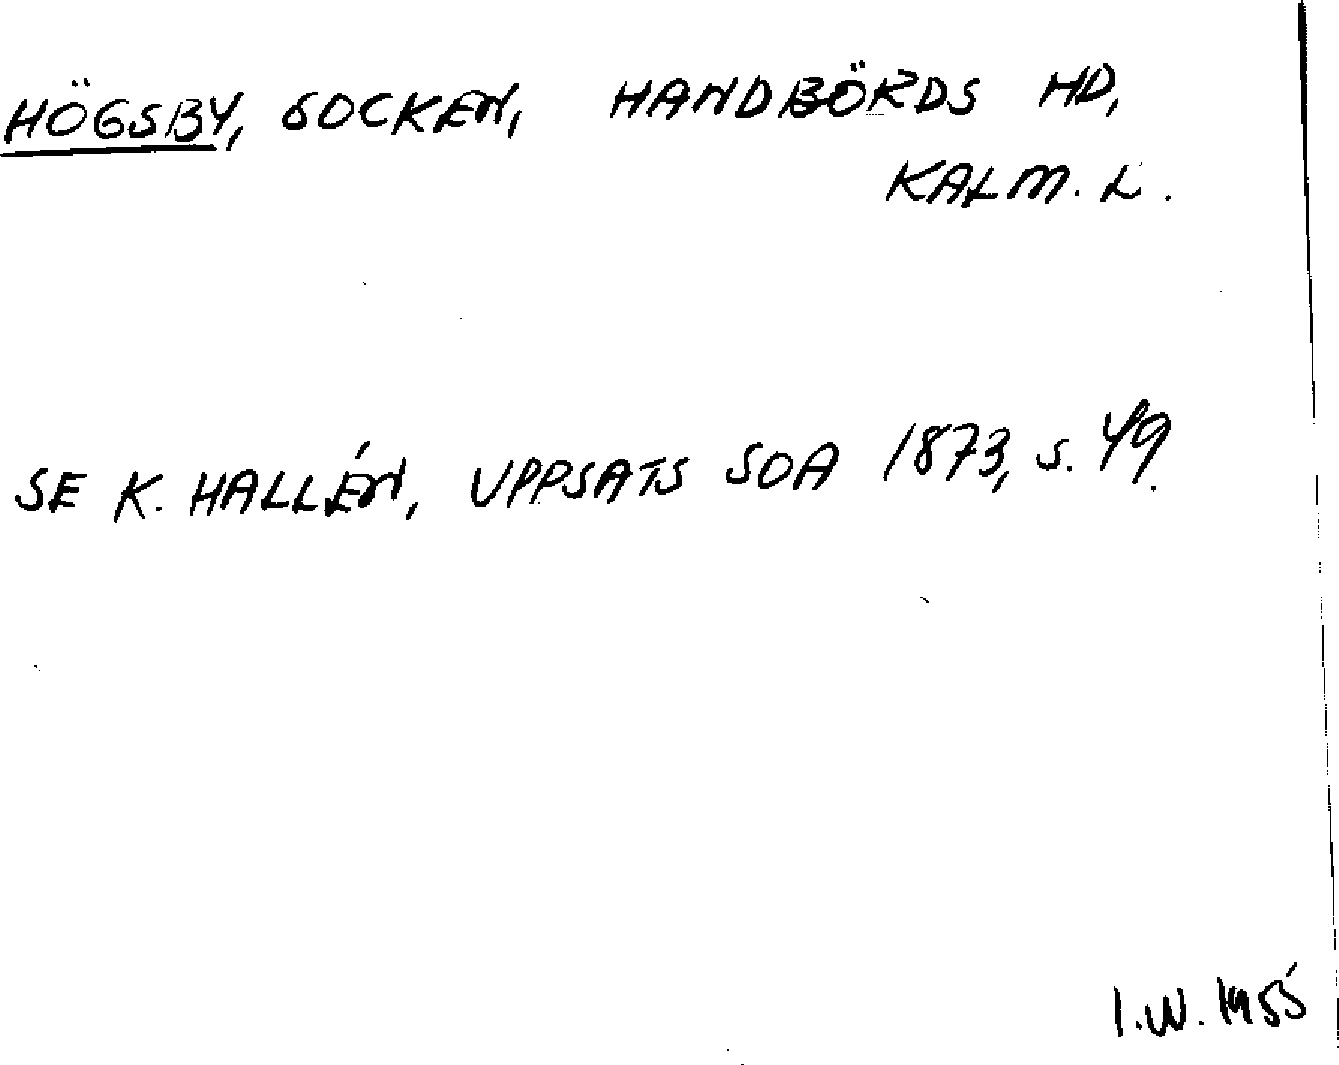 HÖGSBY, SOCKEN, HANDBÖRDS HD,
KALM. L.
SE K. HALLÉN, UPPSATS SOA 1873, S. 49.
I.W. 1955